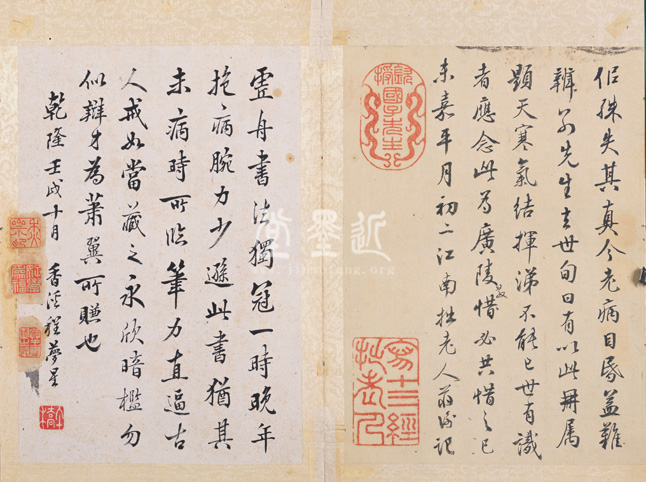 佀殊失其真今老病目昏益難
辨先生去世旬日有以此冊属
題天寒氣結揮涕不能已世有識
者應念此為廣陵散惜必共惜之己
未嘉平月初二江南拙老人蔣衡記
寫十三經拙老人
虛舟書法獨冠一時晚年
抱病腕力少遜此書猶其
未病時所臨筆力直逼古
人戒如當藏之永欣暗檻勿
似辯才為蕭翼所賺也
乾隆壬戌十月 香溪程夢星
近墨堂